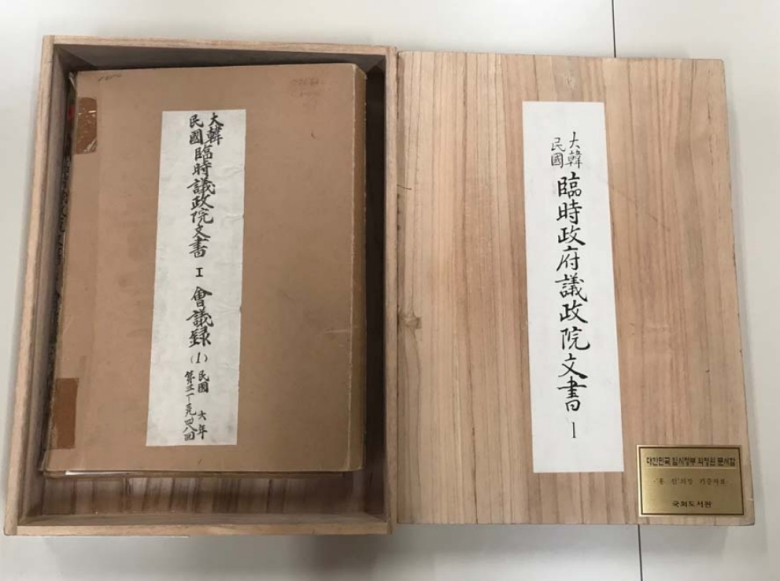 大韓
民國
臨時議政院文書
I
會議録
(1)
民國 六年
大韓
民國
臨時政府議政院文書
1
대한민국 임시정부 의정원 문서집
국회도서관